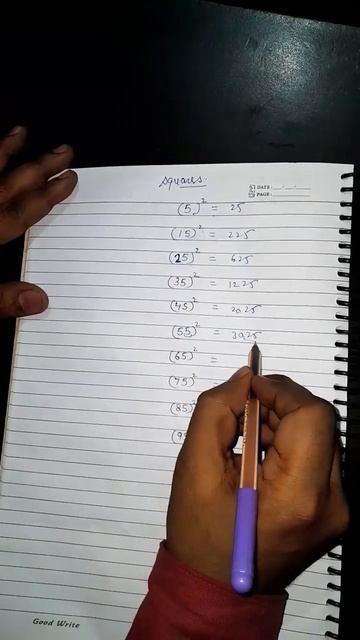 squares
DATE:
PAGE:
(5)² = 25
(15)² = 225
(25)² = 625
(35)² = 1225
(45)² = 2025
(55)² = 3025
(65)² =
(75)² =
(85)²
Good Write